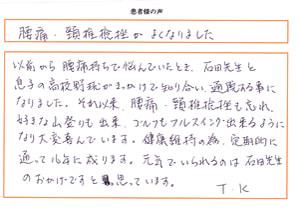 患者様の声
腰痛・頚椎捻挫がよくなりました
以前から腰痛持ちで悩んでいたとき、石田先生と
息子の高校野球がきっかけで知り合い、通院する事に
なりました。それ以来、腰痛・頚椎捻挫も忘れ、
好きな山登りも出来、ゴルフもフルスイング出来るように
なり大変喜んでいます。健康維持の為、定期的に
通って16年に成ります。元気でいられるのは石田先生
のおかげですと思っています。
T.K